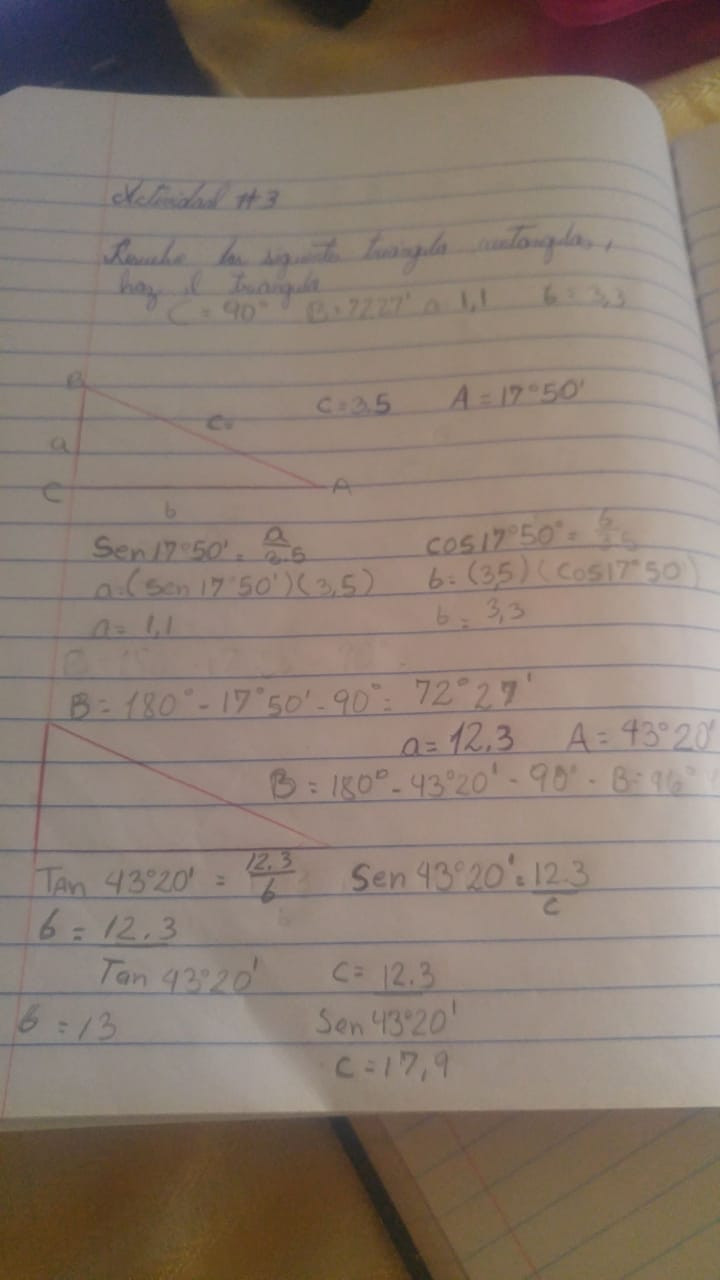 Actividad #3
Resuelve los siguientes triangulos rectangulos,
haz el triangulo
C = 90° B = 7227' a 1,1 b = 3,3
B
c=
C = 3,5 A = 17°50'
a
C
A
b
Sen 17°50' = a/3.5
cos 17°50° = b/3.5
a=(sen 17°50')(3,5)
b = (3,5)(cos17°50)
a = 1,1
b = 3,3
B = 180° - 17°50' - 90° = 72°27'
a = 12.3 A = 43°20'
B = 180° - 43°20' - 90° - B = 96°
Tan 43°20' = 12.3/b
Sen 43°20' = 12.3/c
b = 12.3
Tan 43°20'
C = 12.3
Sen 43°20'
b = 13
C = 17,9